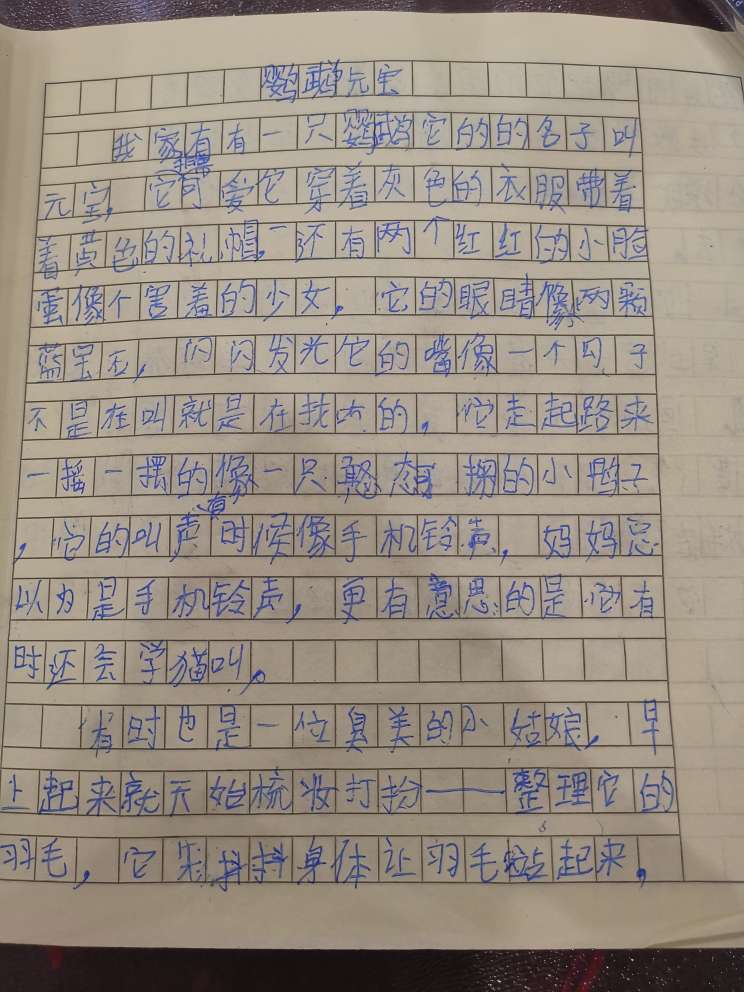 鹦鹉元宝
我家有有一只鹦鹉它的的名子叫
元宝，它非常可爱它穿着灰色的衣服带着
着黄色的礼帽，还有两个红红的小脸
蛋像个害羞的少女，它的眼睛像两颗
蓝宝石，闪闪发光它的嘴像一个勾子
不是在叫就是在找吃的，它走起路来
一摇一摆的像一只憨态可掬的小鸭子
，它的叫声有时候像手机铃声，妈妈总
以为是手机铃声，更有意思的是它有
时还会学猫叫。
有时也是一位臭美的小姑娘，早
上起来就开始梳妆打扮——整理它的
羽毛，它先抖抖身体让羽毛站起来，